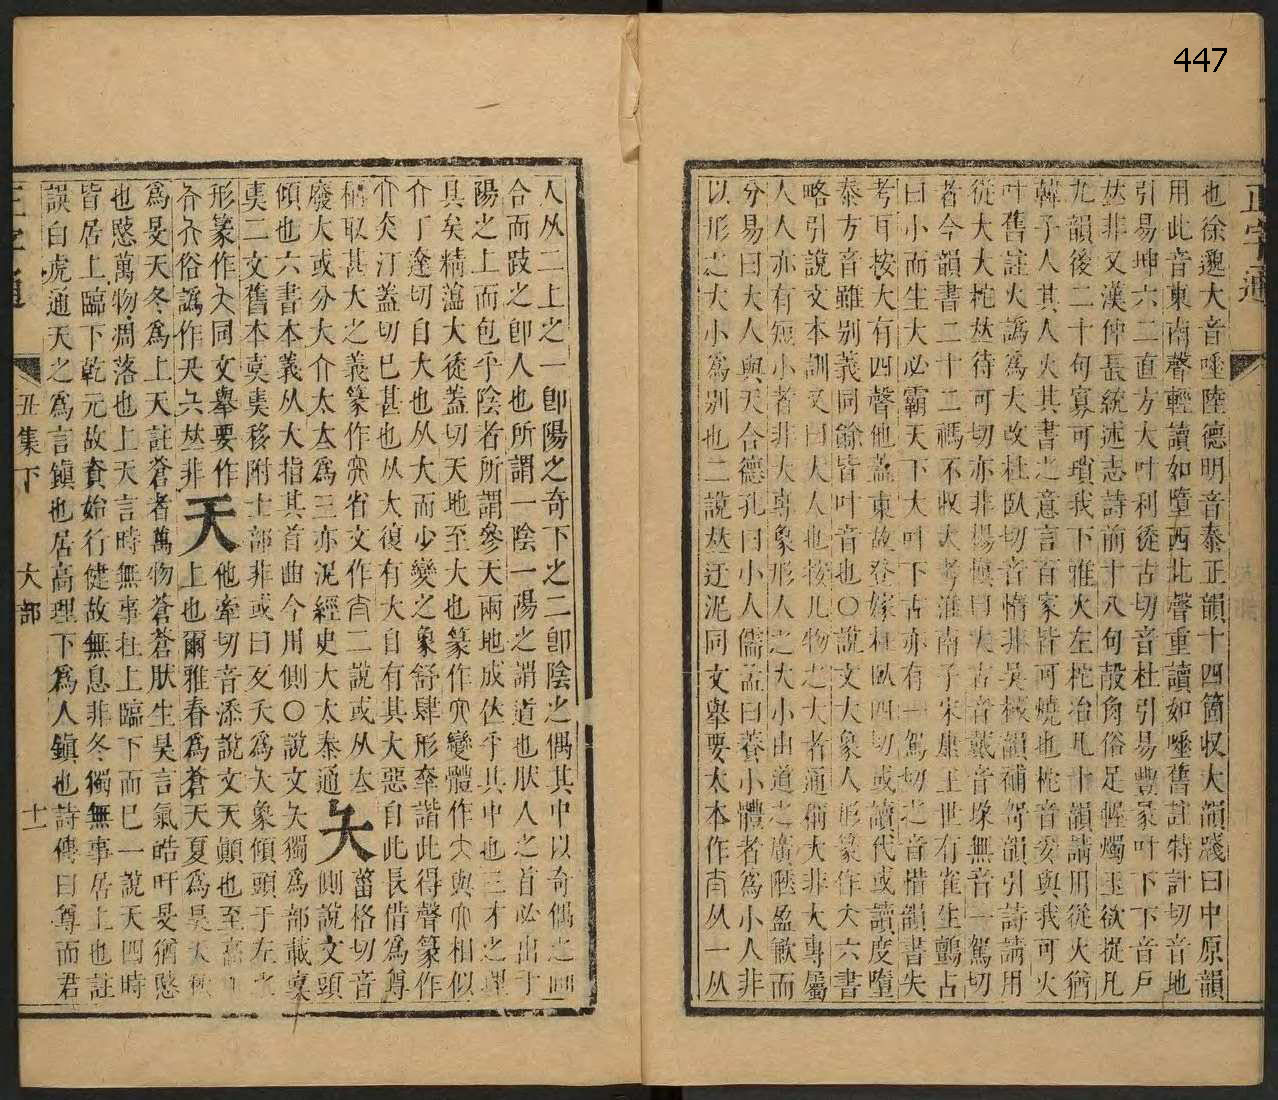 447
正字通
也徐邈大音唾陸德明音泰正韻十四箇收大韻牋曰中原韻
用此音東南聲輕讀如墮西北聲重讀如唾舊註特計切音地
引易坤六二直方大叶利從古切音杜引易豐彖叶下下音戸
𠀤非又漢仲長統述志詩前十八句殽角俗足幄燭玉欲捉凡
九韻後二十句寡可瑣我下雅火左柁冶凡十韻請用從火猶
韓子人其人火其書之意言百家皆可燒也柁音妥與我可火
叶舊註火譌爲大改杜臥切音惰非吳棫韻補哿韻引詩請用
從大大柁𠀤待可切亦非楊愼曰大古音戴音垜無音一駕切
者今韻書二十二禡不收大考淮南子宋康王世有雀生鸇占
曰小而生大必霸天下大叶下古亦有一駕切之音惜韻書失
考耳按大有四聲他蓋東故登嫁杜臥四切或讀代或讀度墮
泰方音雖别義同餘皆叶音也〇說文大象人形篆作大六書
略引說文本訓又曰大人也按凡物之大者通稱大非大專屬
人人亦有短小者非大專象形人之大小由道之廣陿盈歉而
分易曰大人與天合德孔曰小人儒孟曰養小體者爲小人非
以形之大小爲别也二說𠀤迂泥同文舉要太本作从一从
人从二上之一卽陽之奇下之二卽陰之偶其中以奇偶之
合而跂之卽人也所謂一陰一陽之謂道也肰人之首必出于
陽之上而包乎陰者所謂參天兩地成位乎其中也三才之理
具矣精蘊大徒蓋切天地至大也篆作變體作與相似
介丁逹切自大也从大而少變之象舒肆形牽諧此得聲篆作
汀蓋切巳甚也从大復有大自有其大惡自此長借爲尊
稱取甚大之義篆作省文作二說或从太
廢大或分大介太夳爲三亦泥經史大太泰通 夨 菑格切音
傾也六書本義从大指其首曲今用側〇說文夨獨爲部載
二文舊本移附士部非或曰夭爲夨象傾頭于左
形篆作夨同文舉要作 天 他牽切音添說文天顚也至高
俗譌作𠀤非上也爾雅春爲蒼天夏爲昊天秋
爲旻天冬爲上天註蒼者萬物蒼蒼肰生昊言氣皓旰旻猶愍
也愍萬物凋落也上天言時無事在上臨下而已一說天四時
皆居上臨下乾元故資始行健故無息非冬獨無事居上也註
誤白虎通天之爲言鎭也居高理下爲人鎭也詩傳曰尊而君
正字通
丑集下
大部
十一